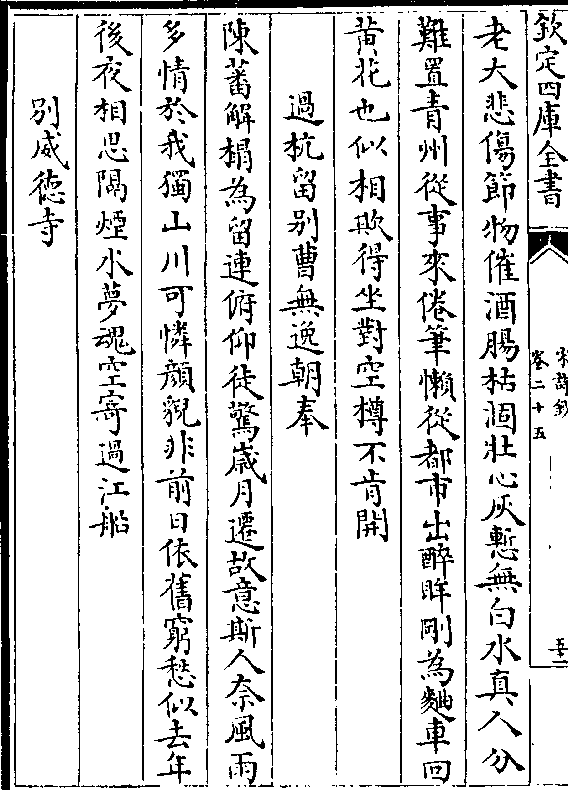 欽定四庫全書
宋詩鈔
卷二十五
老大悲傷節物催酒腸枯涸壯心灰慙無白水真人分
難置青州從事來倦筆懶從都市出醉眸剛為麯車回
黄花也似相欺得坐對空樽不肯開
過杭留别曹無逸朝奉
陳蕃解榻為留連俯仰徒驚嵗月遷故意斯人奈風雨
多情於我獨山川可憐顔貌非前日依舊窮愁似去年
後夜相思隔煙水夢魂空寄過江船
别威徳寺